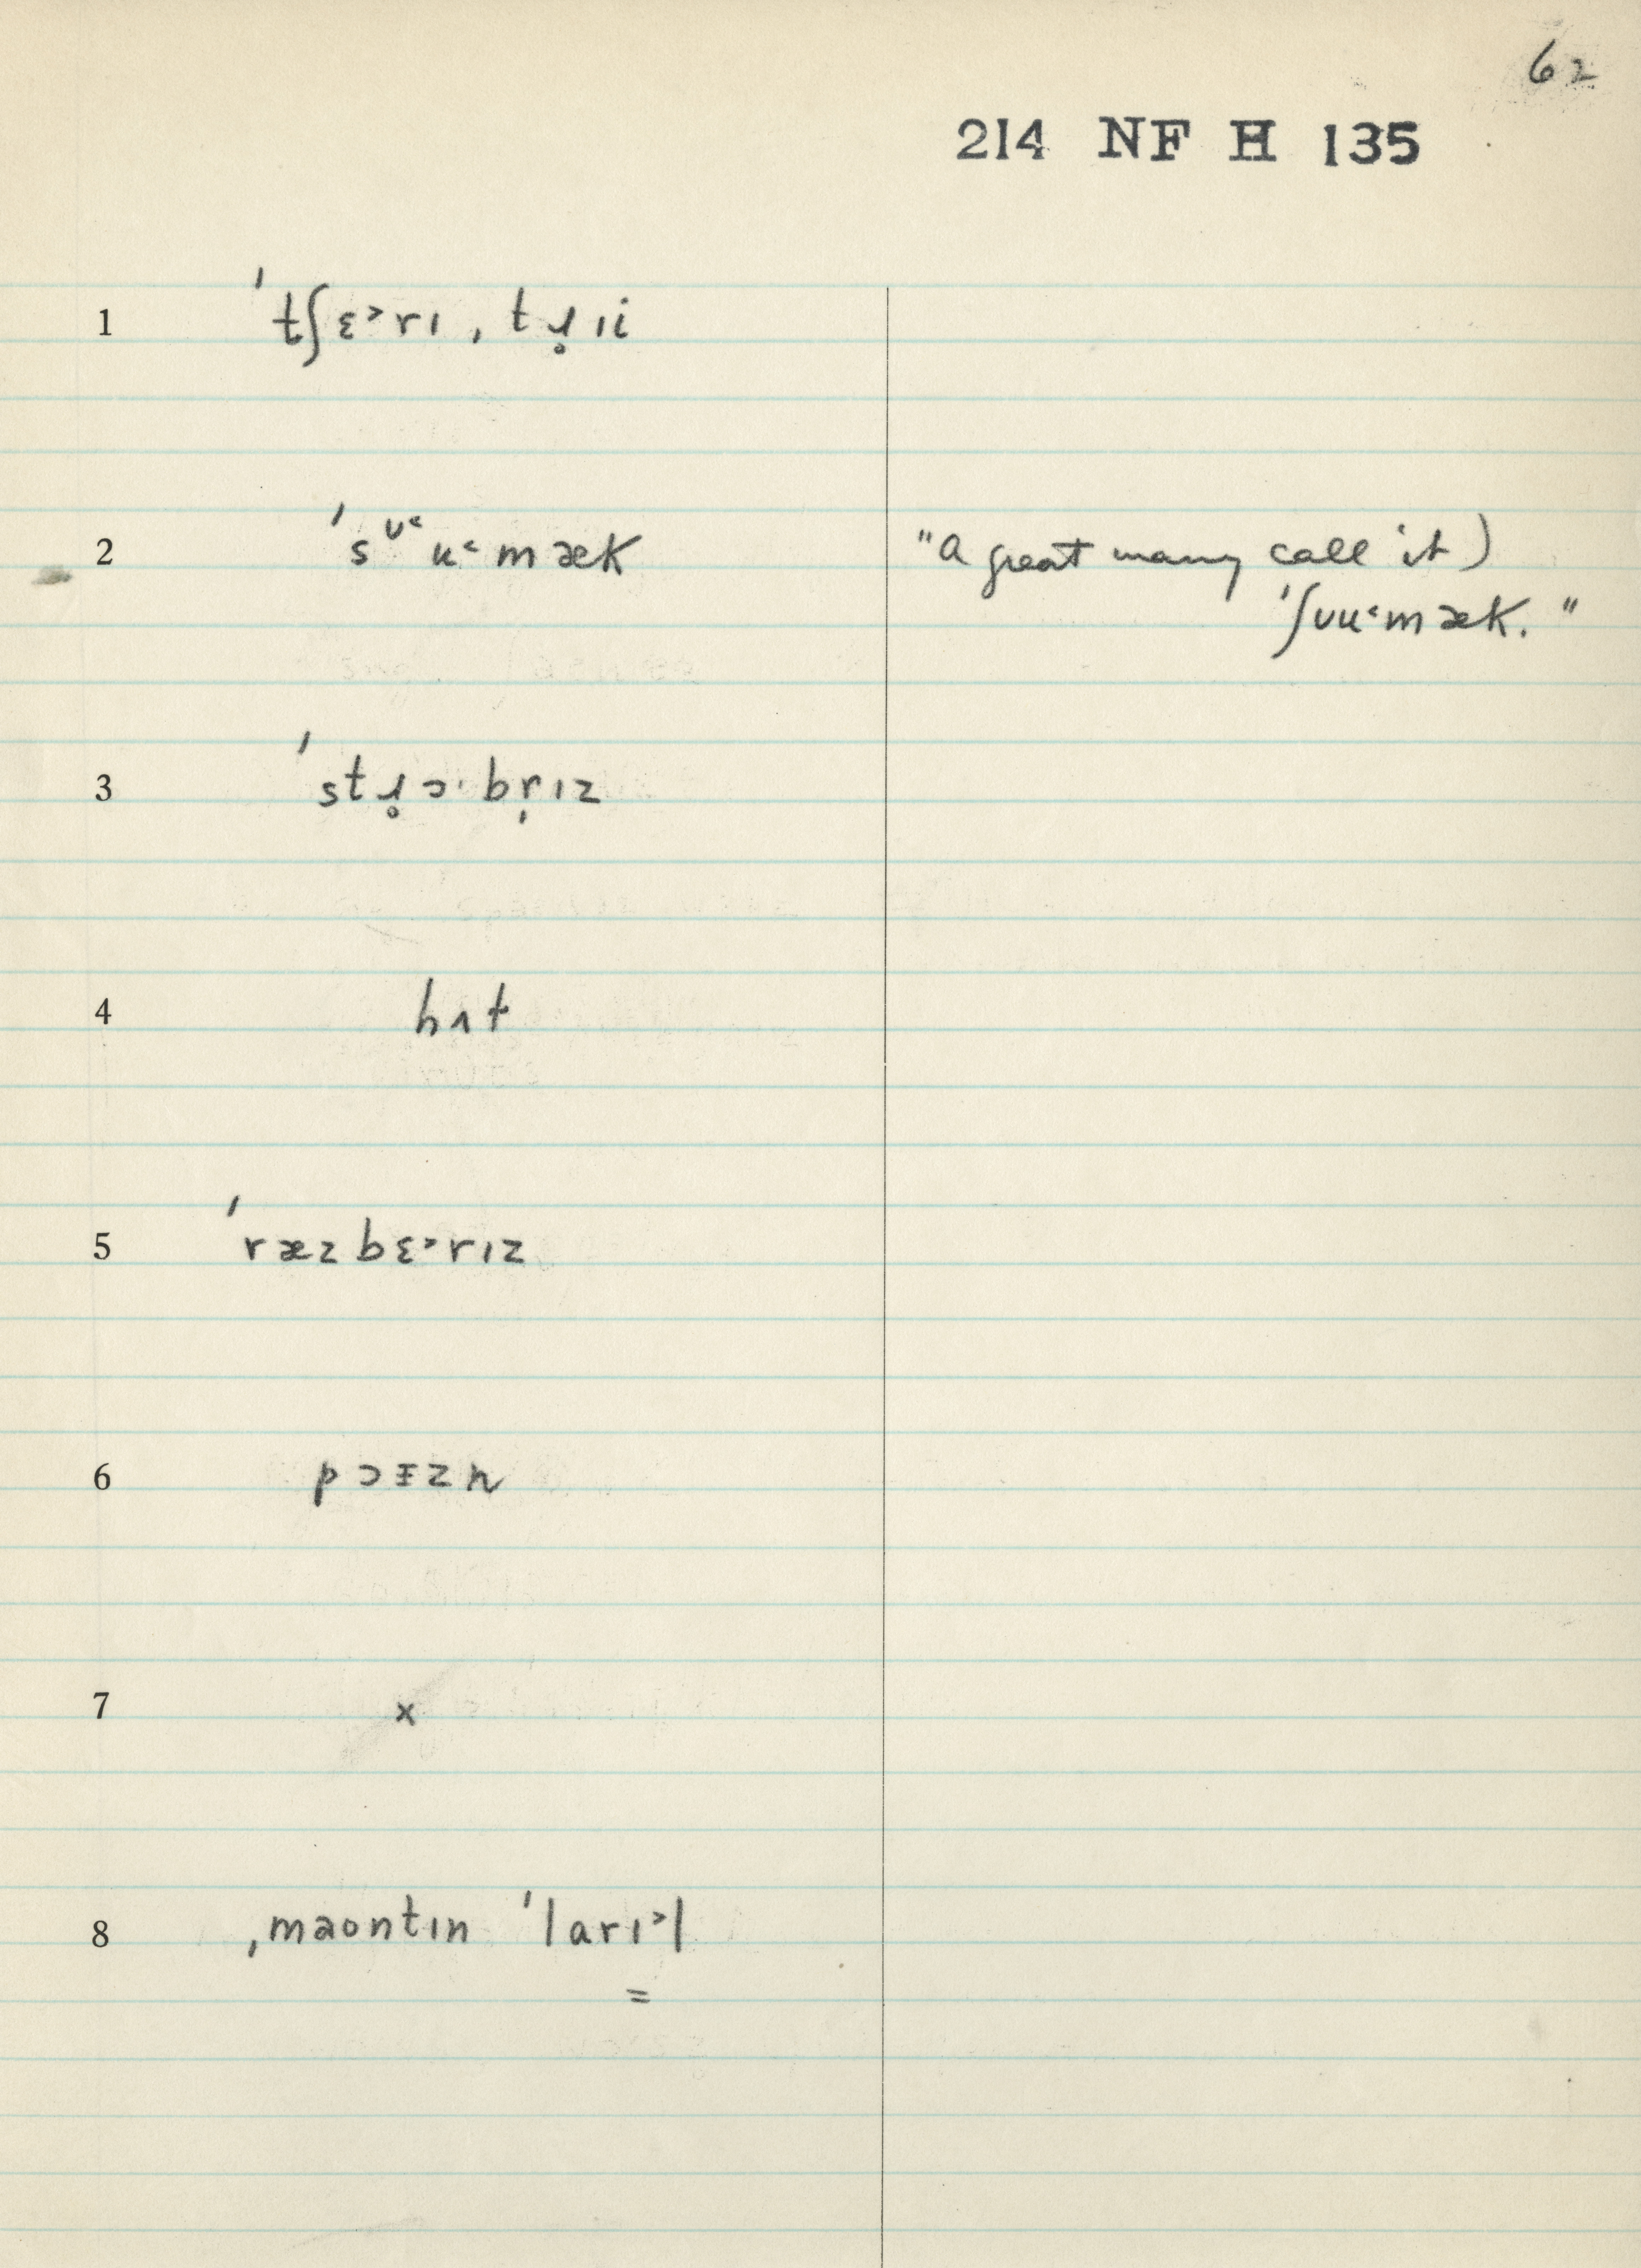 62
214 NF H 135
1 ˈtʃɛ˃rɪ ˌtɹ̥ɪi
2 ˈsᶷ˂ʉ˂mæk "a great many call it)
ˈʃʊʉ˂mæk."
3 ˈstɹ̥ɔ·br̩ɪz
4 hɪt
5 ˈræzbɛ˃rɪz
6 pɔɪzn
7 x
8 ˌmaontɪn ˈlarɪ˃l
=